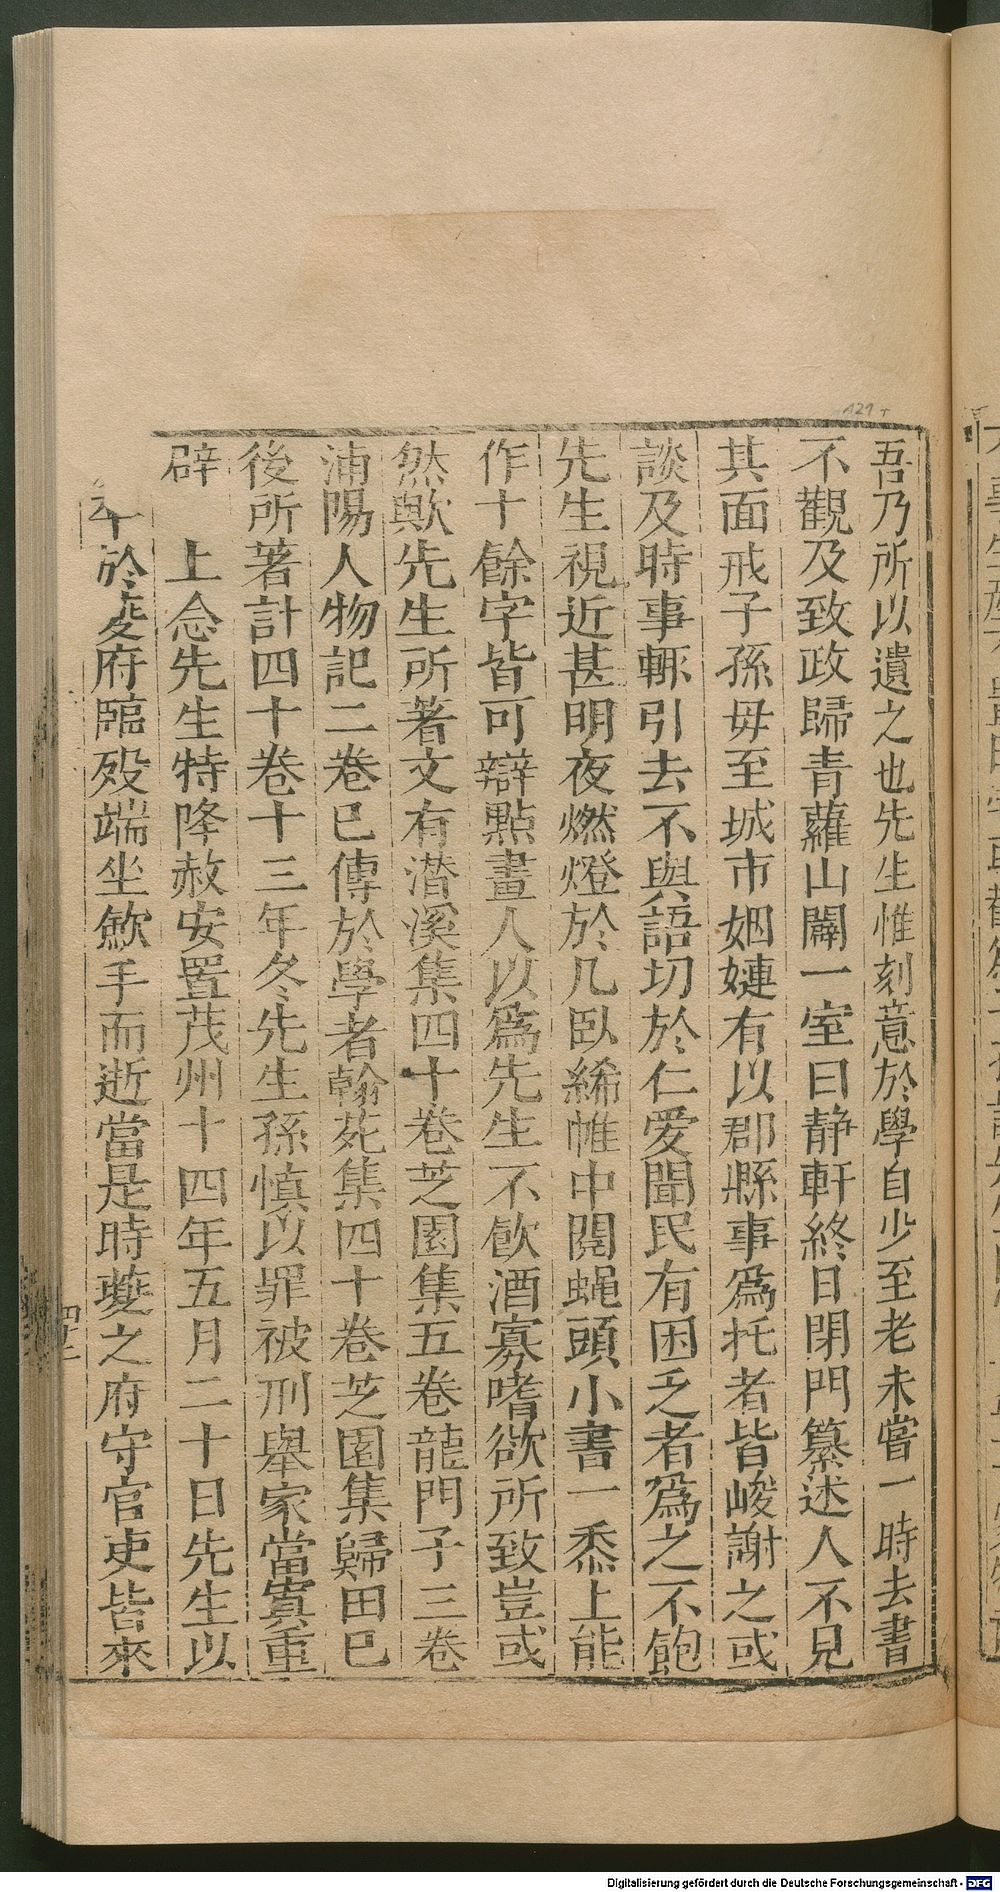 吾乃所以遺之也先生惟刻意於學自少至老未嘗一時去書
不觀及致政歸青蘿山闢一室曰静軒終日閉門纂述人不見
其面戒子孫毋至城市姻娗有以郡縣事爲托者皆峻謝之或
談及時事輒引去不與語切於仁愛聞民有困乏者爲之不飽
先生視近甚明夜燃燈於几臥絺帷中閱蝇頭小書一黍上能
作十餘字皆可辯點畫人以爲先生不飲酒寡嗜欲所致豈或
然歟先生所著文有潜溪集四十卷芝園集五卷龍門子三卷
浦陽人物記二卷巳傳於學者翰苑集四十卷芝園集歸田巳
後所著計四十卷十三年冬先生孫慎以罪被刑舉家當寘重
辟　上念先生特降赦安置茂州十四年五月二十日先生以
卒於夔府臨殁端坐歛手而逝當是時夔之府守官吏皆來
四十二
Digitalisierung gefördert durch die Deutsche Forschungsgemeinschaft - DFG